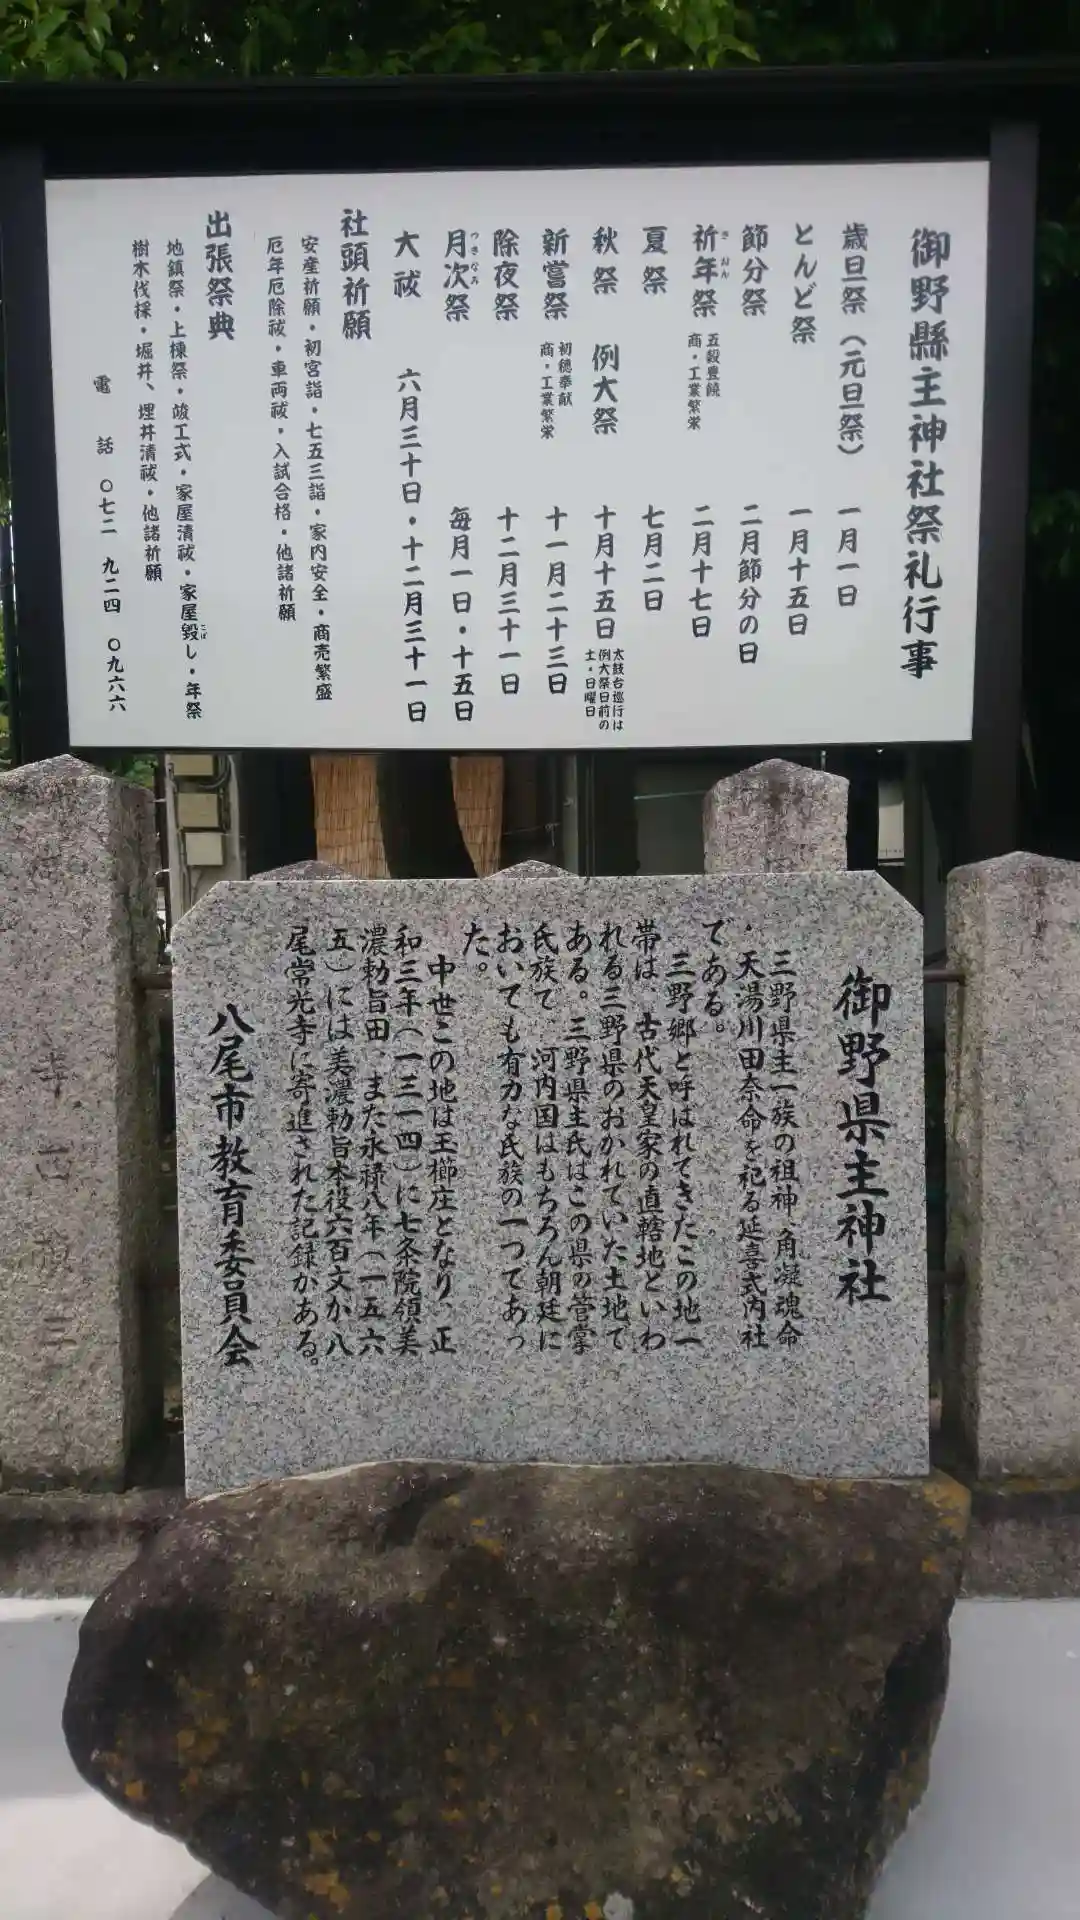 御野縣主神社祭礼行事
歳旦祭（元旦祭） 一月一日
とんど祭 一月十五日
節分祭 二月節分の日
祈年祭 五穀豊饒 商・工業繁栄 二月十七日
き ねん
夏祭 七月二日
秋祭 例大祭 十月十五日 太鼓台巡行は 例大祭日前の 土・日曜日
新嘗祭 初穂奉献 商・工業繁栄 十一月二十三日
除夜祭 十二月三十一日
月次祭 毎月一日・十五日
つきなみ
大祓 六月三十日・十二月三十一日
社頭祈願
安産祈願・初宮詣・七五三詣・家内安全・商売繁盛
厄年厄除祓・車両祓・入試合格・他諸祈願
出張祭典
地鎮祭・上棟祭・竣工式・家屋清祓・家屋毀し・年祭
こぼ
樹木伐採・堀井、埋井清祓・他諸祈願
電話 〇七二 九二四 〇九六六
御野県主神社
三野県主一族の祖神 角凝魂命
・天湯川田奈命を祀る延喜式内社
である。
三野郷と呼ばれてきたこの地一
帯は、古代天皇家の直轄地といわ
れる三野県のおかれていた土地で
ある。三野県主氏はこの県の管掌
氏族で 河内国はもちろん朝廷に
おいても有力な氏族の一つであっ
た。
中世この地は玉櫛庄となり、正
和三年（一三一四）に七条院領美
濃勅旨田、また永禄八年（一五六
五）には美濃勅旨本役六百文が八
尾常光寺に寄進された記録がある。
八尾市教育委員会